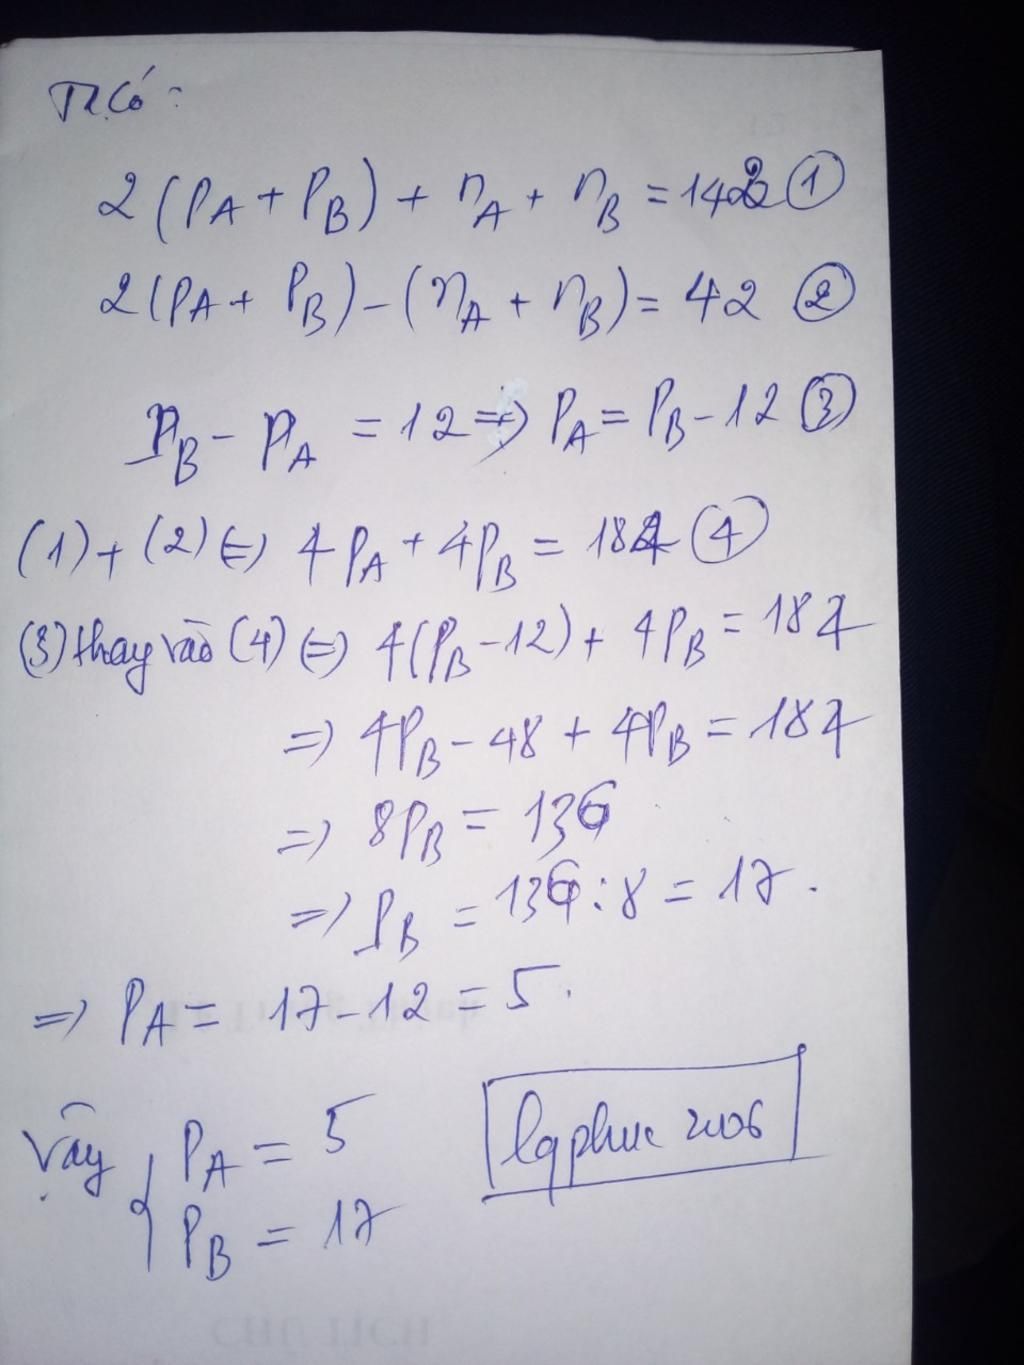 Ta có:
2(PA + PB) + nA + nB = 142 ①
2(PA + PB) - (nA + nB) = 42 ②
PB - PA = 12 => PA = PB - 12 ③
(1) + (2) <=> 4PA + 4PB = 184 ④
(3) thay vào (4) <=> 4(PB - 12) + 4PB = 184
=> 4PB - 48 + 4PB = 184
=> 8PB = 136
=> PB = 136 : 8 = 17.
=> PA = 17 - 12 = 5.
Vậy { PA = 5
PB = 17
lqphuc 2006
CHỦ TỊCH